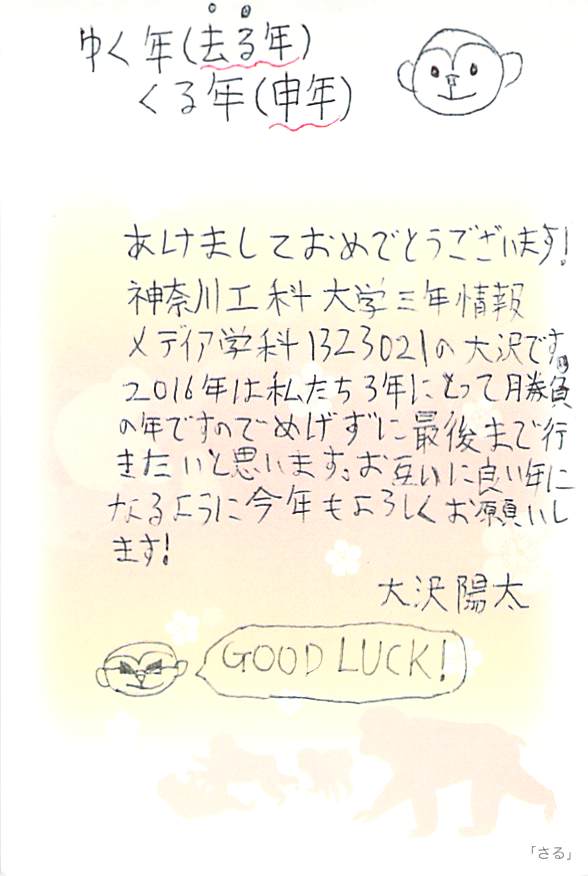 ゆく年(去る年)
くる年(申年)
あけましておめでとうございます!
神奈川工科大学三年情報
メディア学科1323021の大沢です。
2016年は私たち3年にとって勝負
の年ですのでめげずに最後まで行
きたいと思います。お互いに良い年に
なるように今年もよろしくお願いし
ます!
大沢陽太
GOOD LUCK!
「さる」